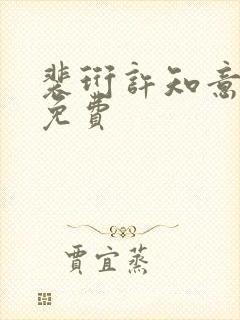 裴衍許知意
免費
賈宜蒸